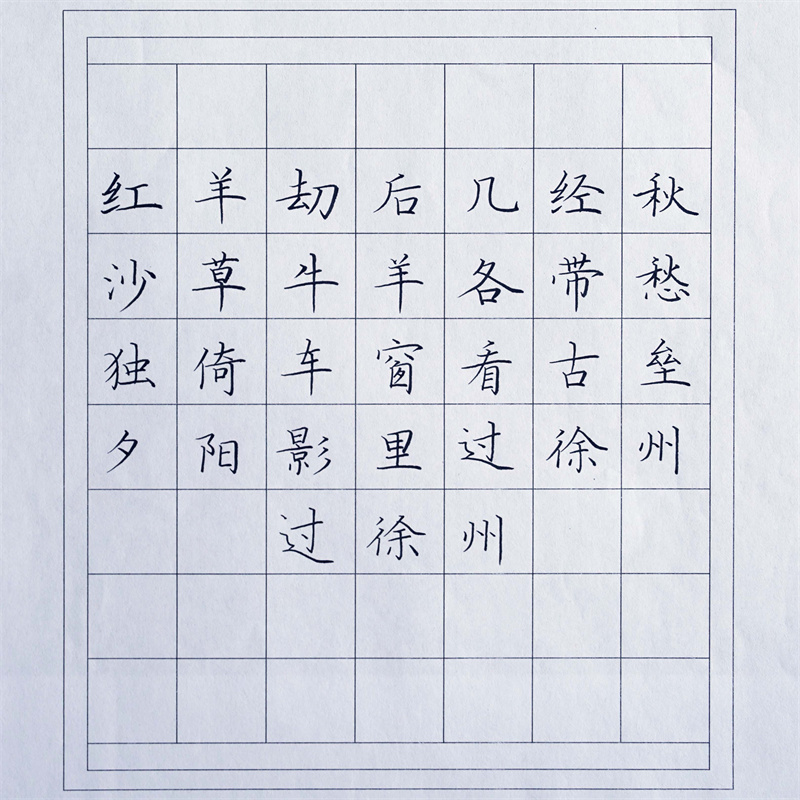 红羊劫后几经秋
沙草牛羊各带愁
独倚车窗看古垒
夕阳影里过徐州
过徐州